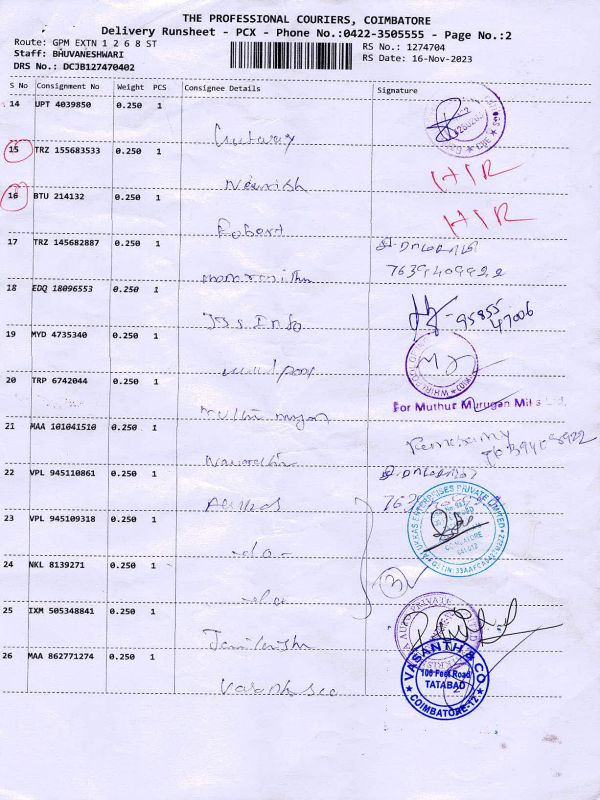 THE PROFESSIONAL COURIERS, COIMBATORE
Delivery Runsheet - PCX - Phone No.:0422-3505555 - Page No.:2
Route: GPM EXTN 1 2 6 8 ST
RS No.: 1274704
Staff: BHUVANESHWARI
RS Date: 16-Nov-2023
DRS No.: DCJB127470402
S No Consignment No Weight PCS Consignee Details Signature
14 UPT 4039850 0.250 1
15 TRZ 155683533 0.250 1
HIR
16 BTU 214132 0.250 1
Robert
HIR
17 TRZ 145682887 0.250 1
7639409922
18 EDQ 18096553 0.250 1
Jss Info
95855
47006
19 MYD 4735340 0.250 1
20 TRP 6742044 0.250 1
For Muthur Murugan Mills
21 MAA 101041510 0.250 1
22 VPL 945110861 0.250 1
23 VPL 945109318 0.250 1
-do-
24 NKL 8139271 0.250 1
-do-
3
25 IXM 505348841 0.250 1
26 MAA 862771274 0.250 1
Vasanth & co
VASANTH & CO
100 Feet Road
TATABAD
COIMBATORE-12